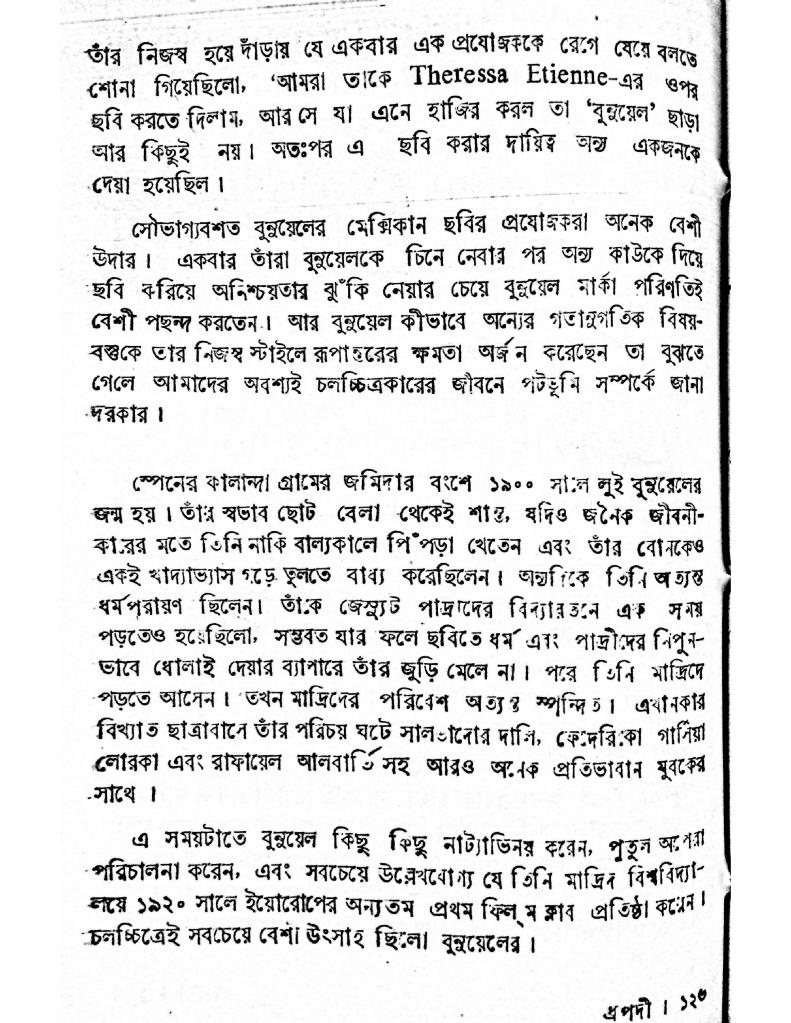 তাঁর নিজস্ব হয়ে দাঁড়ায় যে একবার এক প্রযোজককে রেগে যেয়ে বলতে
শোনা গিয়েছিলো, ‘আমরা তাকে Theressa Etienne-এর ওপর
ছবি করতে দিলাম, আর সে যা এনে হাজির করল তা ‘বুনুয়েল’ ছাড়া
আর কিছুই নয়। অতঃপর এ ছবি করার দায়িত্ব অন্য একজনকে
দেয়া হয়েছিল।
সৌভাগ্যবশত বুনুয়েলের মেক্সিকান ছবির প্রযোজকরা অনেক বেশী
উদার। একবার তাঁরা বুনুয়েলকে চিনে নেবার পর অন্য কাউকে দিয়ে
ছবি করিয়ে অনিশ্চয়তার ঝুঁকি নেয়ার চেয়ে বুনুয়েল মার্কা পরিণতিই
বেশী পছন্দ করতেন। আর বুনুয়েল কীভাবে অন্যের গতানুগতিক বিষয়-
বস্তুকে তার নিজস্ব স্টাইলে রূপান্তরের ক্ষমতা অর্জন করেছেন তা বুঝতে
গেলে আমাদের অবশ্যই চলচ্চিত্রকারের জীবনে পটভূমি সম্পর্কে জানা
দরকার।
স্পেনের কালান্দা গ্রামের জমিদার বংশে ১৯০০ সালে লুই বুনুয়েলের
জন্ম হয়। তাঁর স্বভাব ছোট বেলা থেকেই শান্ত, যদিও জনৈক জীবনী-
কারের মতে তিনি নাকি বাল্যকালে পিঁপড়া খেতেন এবং তাঁর বোনকেও
একই খাদ্যাভ্যাস গড়ে তুলতে বাধ্য করেছিলেন। অন্যদিকে তিনি অত্যন্ত
ধর্মপরায়ণ ছিলেন। তাঁকে জেস্যুট পাদ্রীদের বিদ্যায়তনে এক সময়
পড়তেও হয়েছিলো, সম্ভবত যার ফলে ছবিতে ধর্ম এবং পাদ্রীদের নিপুন-
ভাবে ধোলাই দেয়ার ব্যাপারে তাঁর জুড়ি মেলে না। পরে তিনি মাদ্রিদে
পড়তে আসেন। তখন মাদ্রিদের পরিবেশ অত্যন্ত স্পন্দিত। এখানকার
বিখ্যাত ছাত্রাবাসে তাঁর পরিচয় ঘটে সালভাদোর দালি, ফেদেরিকো গার্সিয়া
লোরকা এবং রাফায়েল আলবার্তি সহ আরও অনেক প্রতিভাবান যুবকের
সাথে।
এ সময়টাতে বুনুয়েল কিছু কিছু নাট্যাভিনয় করেন, পুতুল অপেরা
পরিচালনা করেন, এবং সবচেয়ে উল্লেখযোগ্য যে তিনি মাদ্রিদ বিশ্ববিদ্যা-
লয়ে ১৯২০ সালে ইয়োরোপের অন্যতম প্রথম ফিল্ম ক্লাব প্রতিষ্ঠা করেন।
চলচ্চিত্রেই সবচেয়ে বেশী উৎসাহ ছিলো বুনুয়েলের।
ধ্রুপদী।